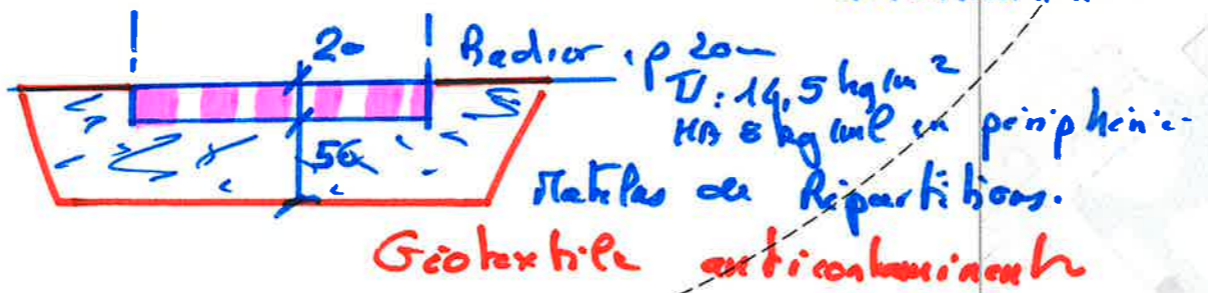 20 Radier ep 20
TS: 14,5 kg/m²
HA 8 kg/ml en périphérie
50
Matelas de Répartitions.
Géotextile anticontaminants